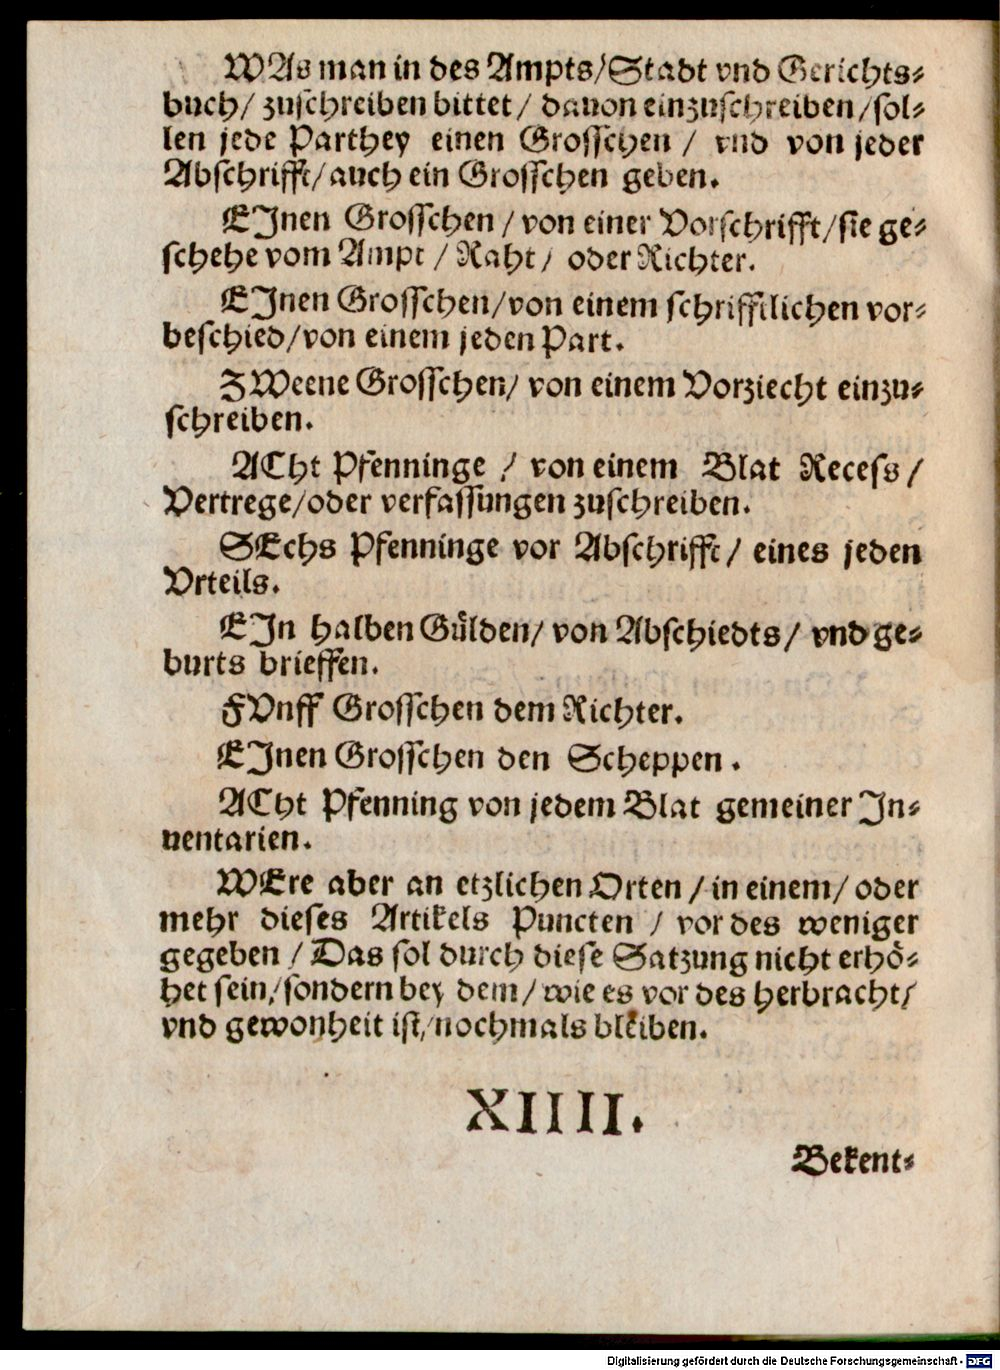 WAs man in des Ampts/Stadt vnd Gerichts⸗
buch/ zuschreiben bittet/ dauon einzuschreiben/sol⸗
len jede Parthey einen Grosschen / vnd von jeder
Abschrifft/auch ein Grosschen geben.
EJnen Grosschen / von einer Vorschrifft/sie ge⸗
schehe vom Ampt / Raht/ oder Richter.
EJnen Grosschen/von einem schrifftlichen vor⸗
beschied/von einem jeden Part.
ZWeene Grosschen/ von einem Vorziecht einzu⸗
schreiben.
ACht Pfenninge / von einem Blat Recess/
Vertrege/oder verfassungen zuschreiben.
SEchs Pfenninge vor Abschrifft/ eines jeden
Vrteils.
EJn halben Gülden/ von Abschiedts/ vnd ge⸗
burts brieffen.
FVnff Grosschen dem Richter.
EJnen Grosschen den Scheppen .
ACht Pfenning von jedem Blat gemeiner Jn⸗
uentarien.
WEre aber an etzlichen Orten / in einem/ oder
mehr dieses Artikels Puncten / vor des weniger
gegeben / Das sol durch diese Satzung nicht erhö⸗
het sein/sondern bey dem/ wie es vor des herbracht/
vnd gewonheit ist/nochmals bleiben.
XIIII.
Bekent⸗
Digitalisierung gefördert durch die Deutsche Forschungsgemeinschaft - DFG